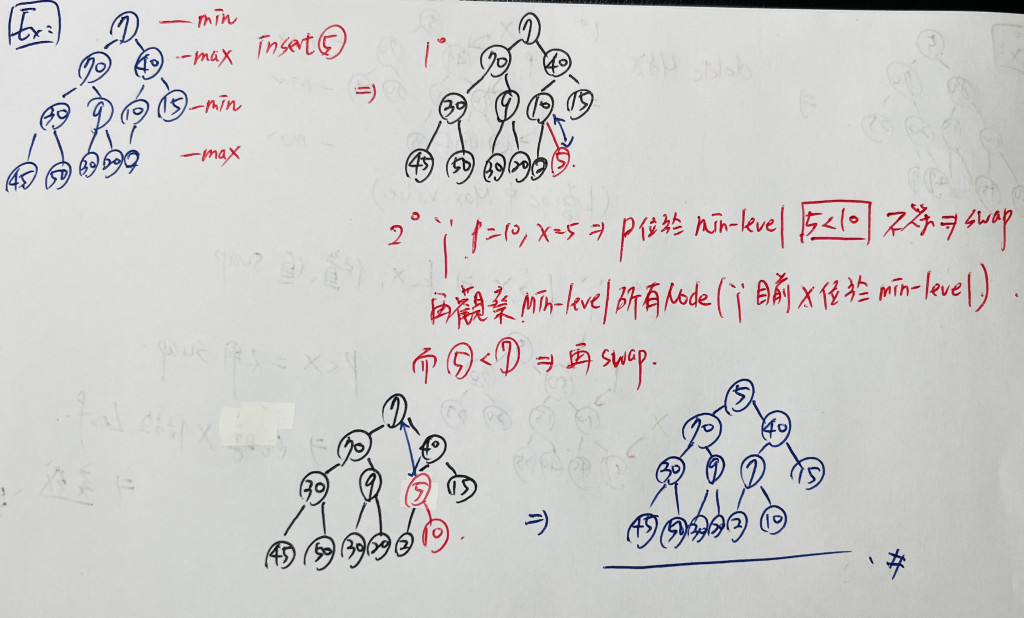 Ex:
7 — min
70 40 — max
30 9 10 15 — min
45 50 30 20 — max
insert ⑤
⇒
1°
7
70 40
30 9 10 15
45 50 30 20 2 5
2° ∵ p=10, x=5 ⇒ p位於 min-level 5<10 不符 ⇒ swap
再觀察 min-level 所有Node (∵ 目前 x 位於 min-level)
而 ⑤ < ⑦ ⇒ 再 swap.
7
70 40
30 9 5 15
45 50 30 20 2 10
⇒
5
70 40
30 9 7 15
45 50 30 2 10
#